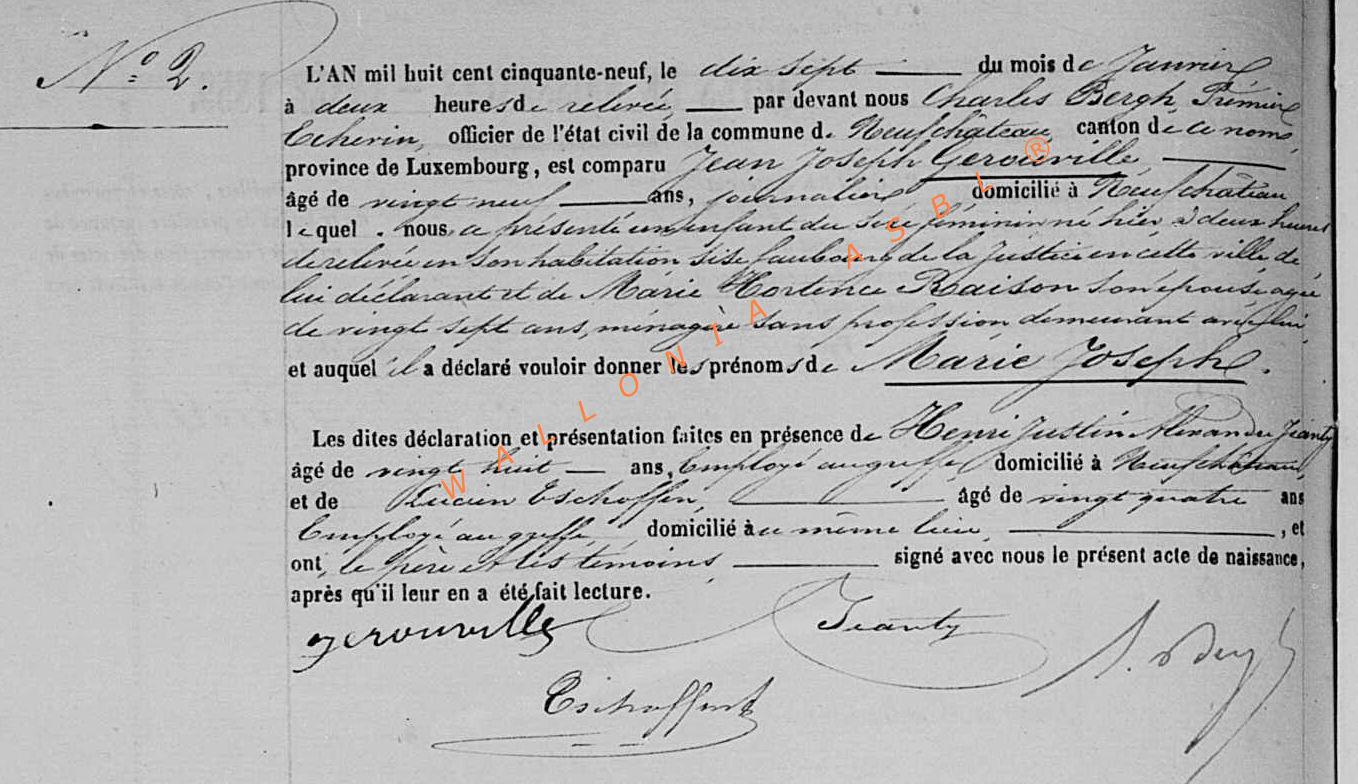 N° 2.
L'AN mil huit cent cinquante-neuf, le dix sept du mois de Janvier
à deux heures de relevée, par devant nous Charles Bergh, Prémier
Echevin, officier de l'état civil de la commune de Neufchâteau, canton de ce nom,
province de Luxembourg, est comparu Jean Joseph Gerouville
âgé de vingt neuf ans, journalier domicilié à Neufchâteau
lequel nous a présenté un enfant du sexe féminin né hier, à deux heures
de relevée en son habitation sise faubourg de la Justice en cette ville de
lui déclarant et de Marie Hortence Raison son épouse agée
de vingt sept ans, ménagère sans profession demeurant avec lui
et auquel il a déclaré vouloir donner les prénoms de Marie Joseph.
Les dites déclaration et présentation faites en présence de Henri Justin Alexandre Jeanty
âgé de vingt huit ans, Employé au greffe domicilié à Neufchâteau
et de Lucien Eschoffen, âgé de vingt quatre ans
Employé au greffe domicilié au même lieu, , et
ont, le père et les témoins signé avec nous le présent acte de naissance,
après qu'il leur en a été fait lecture.
gerouville
Jeanty
Tschoffent
WALLONIA ASBL ®